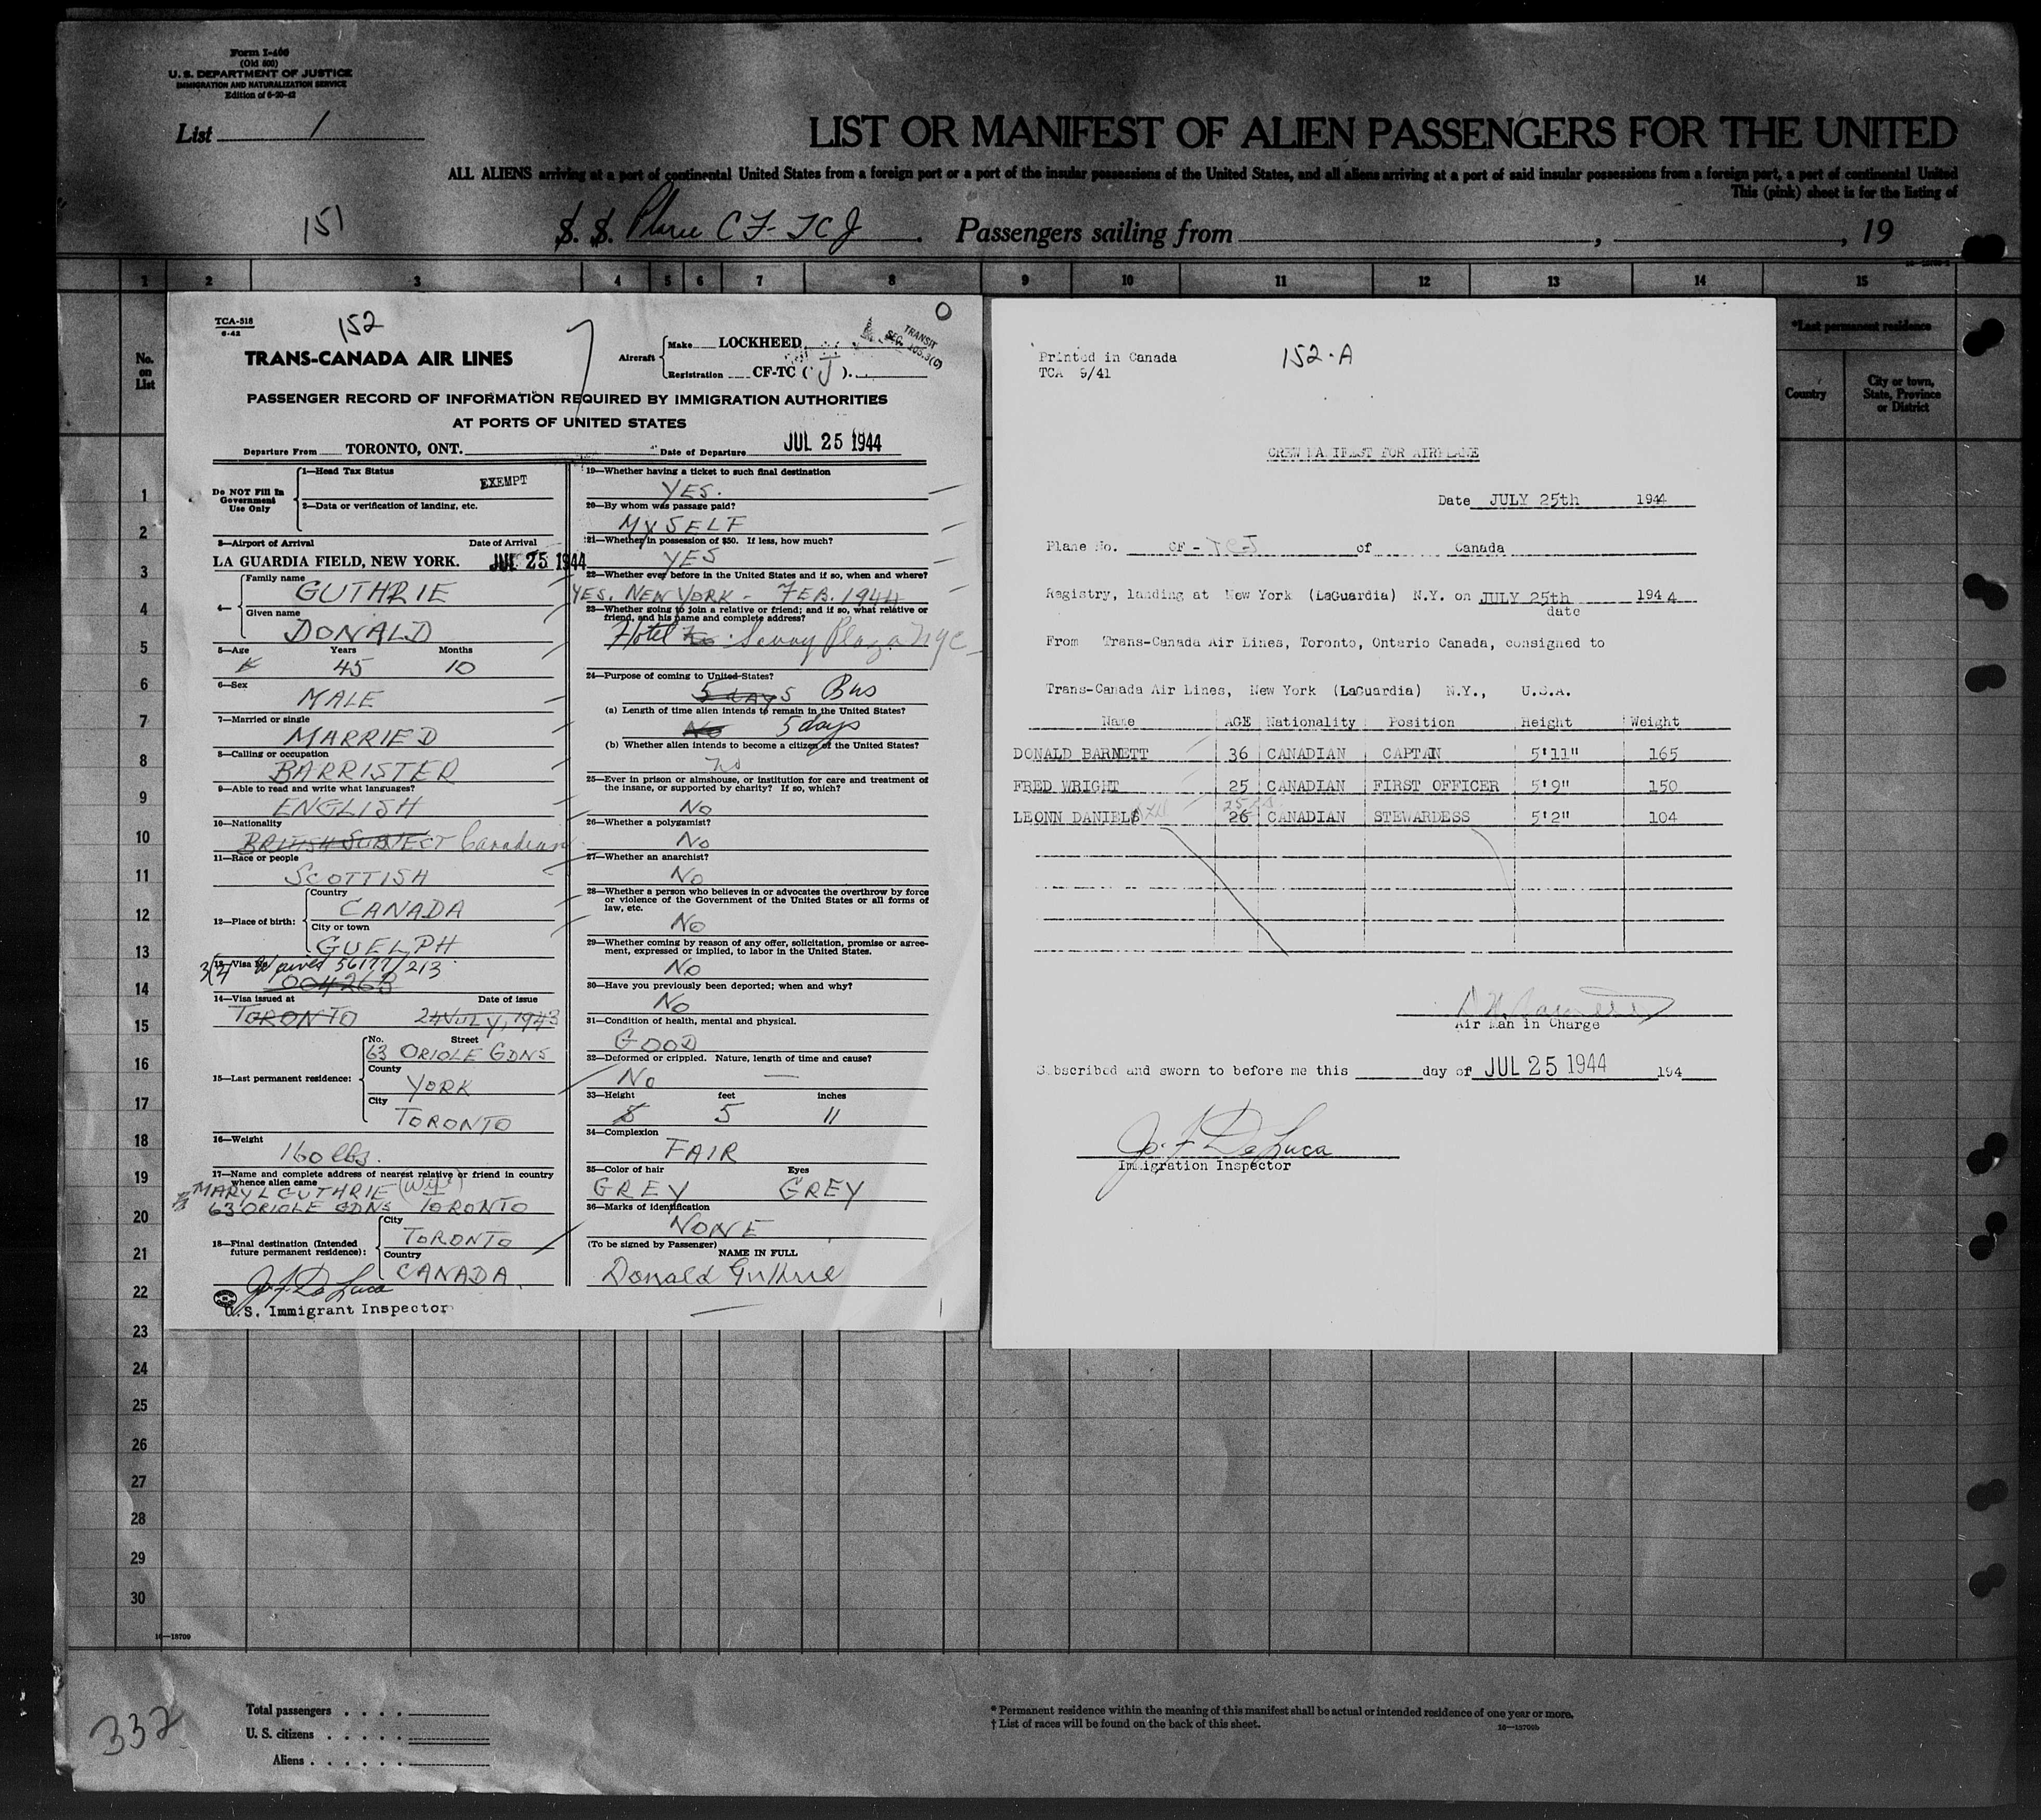 Form I-400
(Old 500)
U. S. DEPARTMENT OF JUSTICE
IMMIGRATION AND NATURALIZATION SERVICE
Edition of 6-20-42
List 1
LIST OR MANIFEST OF ALIEN PASSENGERS FOR THE UNITED
ALL ALIENS arriving at a port of continental United States from a foreign port or a port of the insular possessions of the United States, and all aliens arriving at a port of said insular possessions from a foreign port, a port of continental United
This (pink) sheet is for the listing of
151
S. S. Plane CF-TCJ Passengers sailing from , , 19
1 2 3 4 5 6 7 8 9 10 11 12 13 14 15
No. on List
*Last permanent residence
Country
City or town, State, Province or District
TCA-518
6-42
152
TRANS-CANADA AIR LINES
Aircraft
Make LOCKHEED
Registration CF-TC ( J ).
TRANSIT
PASSENGER RECORD OF INFORMATION REQUIRED BY IMMIGRATION AUTHORITIES
AT PORTS OF UNITED STATES
Departure From TORONTO, ONT. Date of Departure JUL 25 1944
Do NOT Fill In Government Use Only
1—Head Tax Status
EXEMPT
2—Data or verification of landing, etc.
3—Airport of Arrival Date of Arrival
LA GUARDIA FIELD, NEW YORK. JUL 25 1944
4— Family name
GUTHRIE
Given name
DONALD
5—Age Years Months
45 10
6—Sex
MALE
7—Married or single
MARRIED
8—Calling or occupation
BARRISTER
9—Able to read and write what languages?
ENGLISH
10—Nationality
BRITISH SUBJECT Canadian
11—Race or people
SCOTTISH
12—Place of birth:
Country
CANADA
City or town
GUELPH
13—Visa No.
56177/213
004263
14—Visa issued at Date of issue
TORONTO 24 JULY, 1943
15—Last permanent residence:
No. Street
63 ORIOLE GDNS
County
YORK
City
TORONTO
16—Weight
160 lbs.
17—Name and complete address of nearest relative or friend in country
whence alien came
MARY L GUTHRIE (Wife)
63 ORIOLE GDNS TORONTO
18—Final destination (Intended
future permanent residence):
City
TORONTO
Country
CANADA.
Jo. F. De Luca
U.S. Immigrant Inspector
19—Whether having a ticket to such final destination
YES.
20—By whom was passage paid?
MYSELF
21—Whether in possession of $50. If less, how much?
YES
22—Whether ever before in the United States and if so, when and where?
YES. NEW YORK - FEB. 1944
23—Whether going to join a relative or friend; and if so, what relative or
friend, and his name and complete address?
Hotel No. Savoy Plaza NYC
24—Purpose of coming to United States?
5 DAYS Bus
(a) Length of time alien intends to remain in the United States?
No 5 days
(b) Whether alien intends to become a citizen of the United States?
No
25—Ever in prison or almshouse, or institution for care and treatment of
the insane, or supported by charity? If so, which?
No
26—Whether a polygamist?
No
27—Whether an anarchist?
No
28—Whether a person who believes in or advocates the overthrow by force
or violence of the Government of the United States or all forms of
law, etc.
No
29—Whether coming by reason of any offer, solicitation, promise or agree-
ment, expressed or implied, to labor in the United States.
No
30—Have you previously been deported; when and why?
No
31—Condition of health, mental and physical.
GOOD
32—Deformed or crippled. Nature, length of time and cause?
No —
33—Height feet inches
5 11
34—Complexion
FAIR
35—Color of hair Eyes
GREY GREY
36—Marks of identification
NONE
(To be signed by Passenger) NAME IN FULL
Donald Guthrie
Printed in Canada
TCA 9/41
152-A
CREW MANIFEST FOR AIRPLANE
Date JULY 25th 1944
Plane No. CF-TCJ of Canada
Registry, landing at New York (LaGuardia) N.Y. on JULY 25th 1944
date
From Trans-Canada Air Lines, Toronto, Ontario Canada, consigned to
Trans-Canada Air Lines, New York (LaGuardia) N.Y., U.S.A.
Name AGE Nationality Position Height Weight
DONALD BARNETT 36 CANADIAN CAPTAN 5'11" 165
FRED WRIGHT 25 CANADIAN FIRST OFFICER 5'9" 150
LEONN DANIELS 26 CANADIAN STEWARDESS 5'2" 104
Air Man in Charge
Subscribed and sworn to before me this day of JUL 25 1944 194
Jo. F. De Luca
Immigration Inspector
1
2
3
4
5
6
7
8
9
10
11
12
13
14
15
16
17
18
19
20
21
22
23
24
25
26
27
28
29
30
16—18709
332
Total passengers . . . .
U. S. citizens . . . . .
Aliens . . . . . .
* Permanent residence within the meaning of this manifest shall be actual or intended residence of one year or more.
† List of races will be found on the back of this sheet.